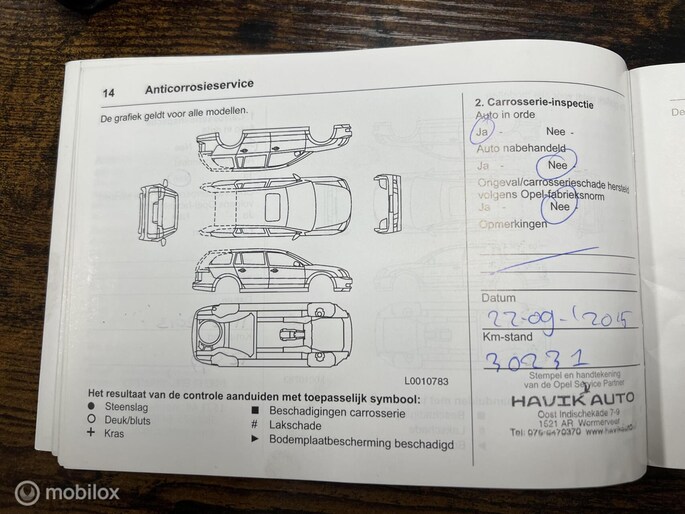 14 Anticorrosieservice
De grafiek geldt voor alle modellen.
L0010783
Het resultaat van de controle aanduiden met toepasselijk symbool:
Steenslag
Deuk/bluts
+ Kras
Beschadigingen carrosserie
# Lakschade
Bodemplaatbescherming beschadigd
2. Carrosserie-inspectie
Auto in orde
Ja - Nee -
Auto nabehandeld
Ja - Nee
Ongeval/carrosserieschade hersteld
volgens Opel-fabrieksnorm
Ja - Nee
Opmerkingen
Datum
22-09-'2015
Km-stand
30231
Stempel en handtekening
van de Opel Service Partner
HAVIK AUTO
Oost Indischekade 7-9
1521 AR Wormerveer
Tel: 075-6470370 www.havikauto
De
mobilox